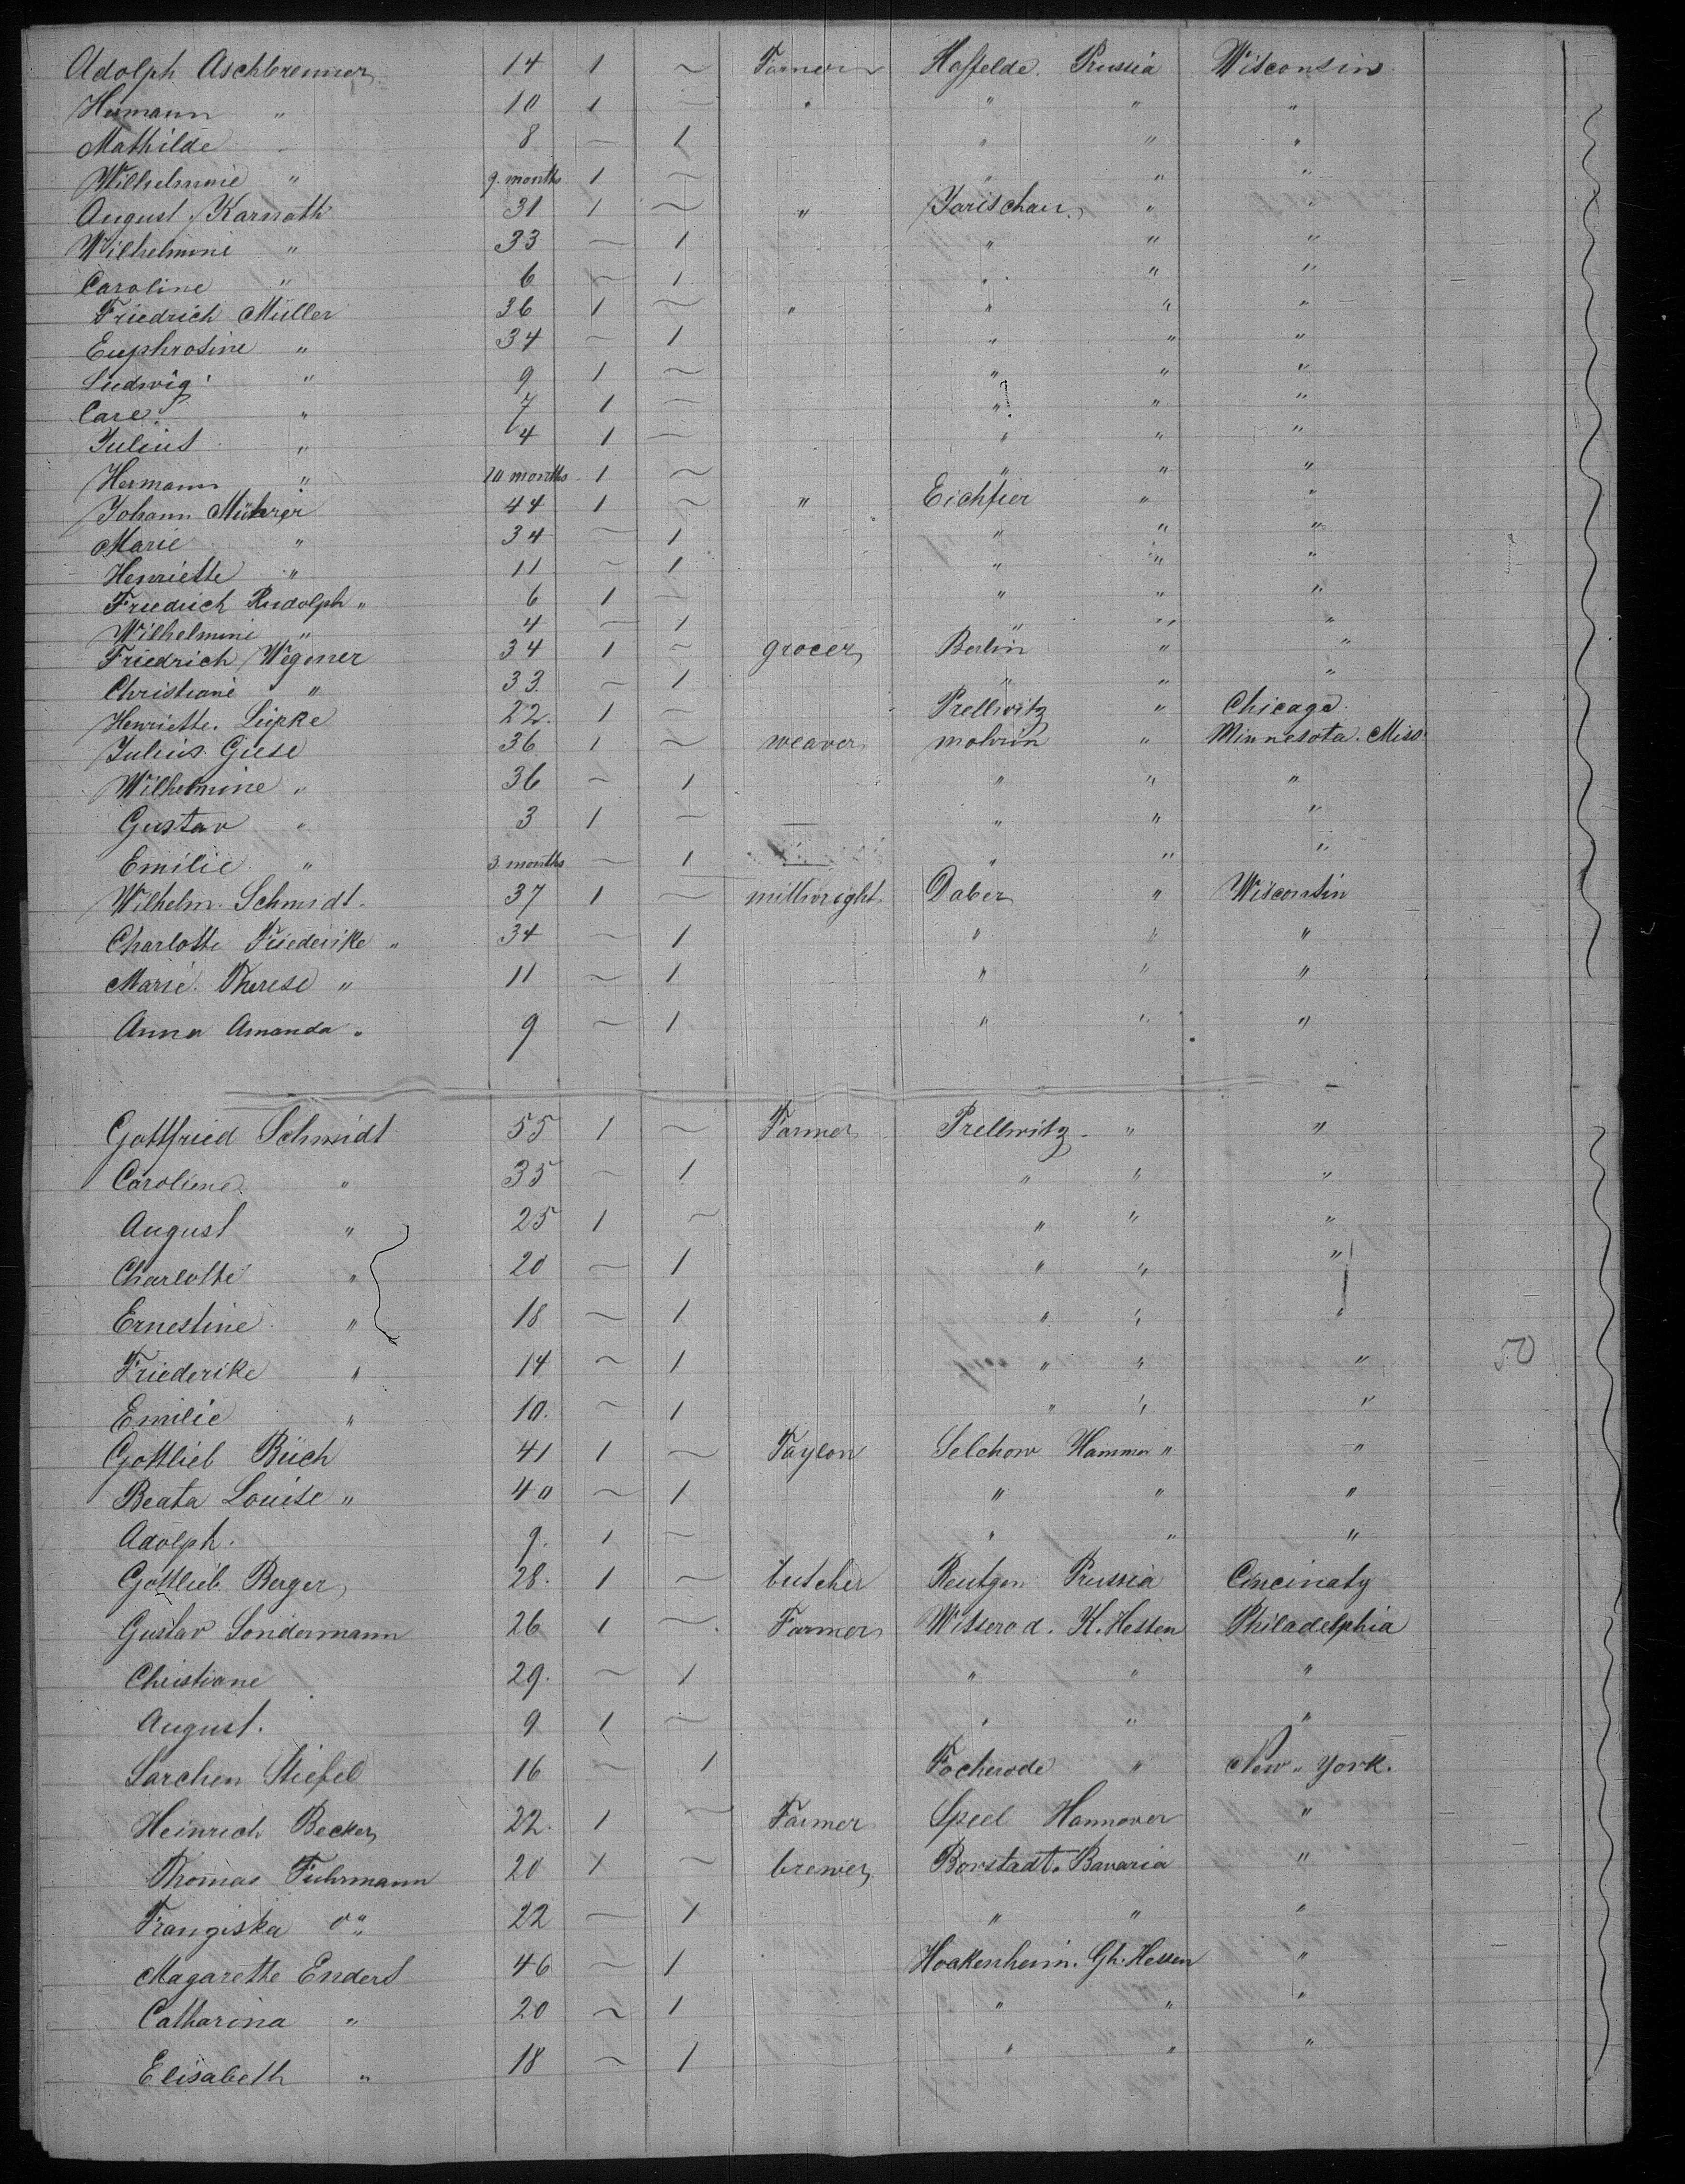 Adolph Aschbrenner 14 1 ~ Farmer Hoffelde. Prussia Wisconsin
Hermann " 10 1 ~ " " " "
Mathilde " 8 ~ 1 " " "
Wilhelmine " 9. months 1 ~ " " "
August Karnath 31 1 ~ " Jarischau " "
Wilhelmine " 33 ~ 1 " " "
Caroline " 6 ~ 1 " " "
Friedrich Müller 36 1 ~ " " " "
Euphrosine " 34 ~ 1 " " "
Ludwig " 9 1 ~ " " "
Carl " 7 1 ~ " " "
Julius " 4 1 ~ " " "
Hermann " 10 months 1 ~ " " "
Johann Mührer 44 1 ~ " Eichfier " "
Marie " 34 ~ 1 " " "
Henriette " 11 ~ 1 " " "
Friedrich Rudolph " 6 1 ~ " " "
Wilhelmine " 4 ~ 1 " " "
Friedrich Wegener 34 1 ~ grocer Berlin " "
Christiane " 33 ~ 1 " " "
Henriette. Lüpke 22. 1 ~ Prellwitz " Chicago.
Julius Giese 36 1 ~ weaver mohrin " Minnesota. Miss.
Wilhelmine " 36 ~ 1 " " "
Gustav " 3 1 ~ — " " "
Emilie " 3. months ~ 1 — " " "
Wilhelm. Schmidt. 37 1 ~ millwright Daber " Wisconsin
Charlotte Friederike " 34 ~ 1 " " "
Marie. Therese " 11 ~ 1 " " "
Anna Amanda " 9 ~ 1 " " "
Gottfried Schmidt 55 1 ~ Farmer Prellwitz " "
Caroline. " 35 ~ 1 " " "
August " 25 1 ~ " " "
Charlotte " 20 ~ 1 " " "
Ernestine " 18 ~ 1 " " "
Friederike " 14 ~ 1 " " " 50
Emilie " 10. ~ 1 " " "
Gottlieb Büch 41 1 ~ Taylor Selchow Hammer " "
Beata Louise " 40 ~ 1 " " "
Adolph. 9. 1 ~ " " "
Gottlieb Berger 28. 1 ~ butcher Reutgen Prussia Cincinaty
Gustav Sondermann 26 1 ~ Farmer Witserod. K. Hessen Philadelphia
Christiane 29. ~ 1 " " "
August. 9 1 ~ " " "
Sarchen Stiefel 16 ~ 1 Focherode " New-York.
Heinrich Becker 22. 1 ~ Farmer Speel Hannover "
Thomas Fuhrmann 20 1 ~ brewer Borstadt. Bavaria "
Frangiska " 22 ~ 1 " " "
Magarethe Enders 46 ~ 1 Hoakenheim. Gh. Hessen "
Catharina " 20 ~ 1 " " "
Elisabeth " 18 ~ 1 " " "